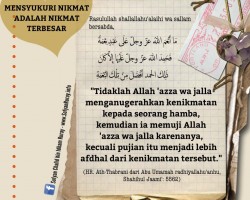 MENSYUKURI NIKMAT
'ADALAH NIKMAT
TERBESAR
Rasulullah shallallahu'alaihi wa sallam
bersabda,
مَا أَنْعَمَ اللَّهُ عَزَّ وَجَلَّ عَلَى عَبْدٍ نِعْمَةً
فَحَمِدَ اللَّهَ عَزَّ وَجَلَّ عَلَيْهَا إِلَّا كَانَ
ذَلِكَ أَفْضَلَ مِنْ تِلْكَ النِّعْمَةِ
"Tidaklah Allah 'azza wa jalla
menganugerahkan kenikmatan
kepada seorang hamba,
kemudian ia memuji Allah
'azza wa jalla karenanya,
kecuali pujian itu menjadi lebih
afdhal dari kenikmatan tersebut."
(HR. Ath-Thabrani dari Abu Umamah radhiyallahu'anhu,
Shahihul Jaami': 5562)
Sofyan Chalid bin Idham Ruray - www.SofyanRuray.info